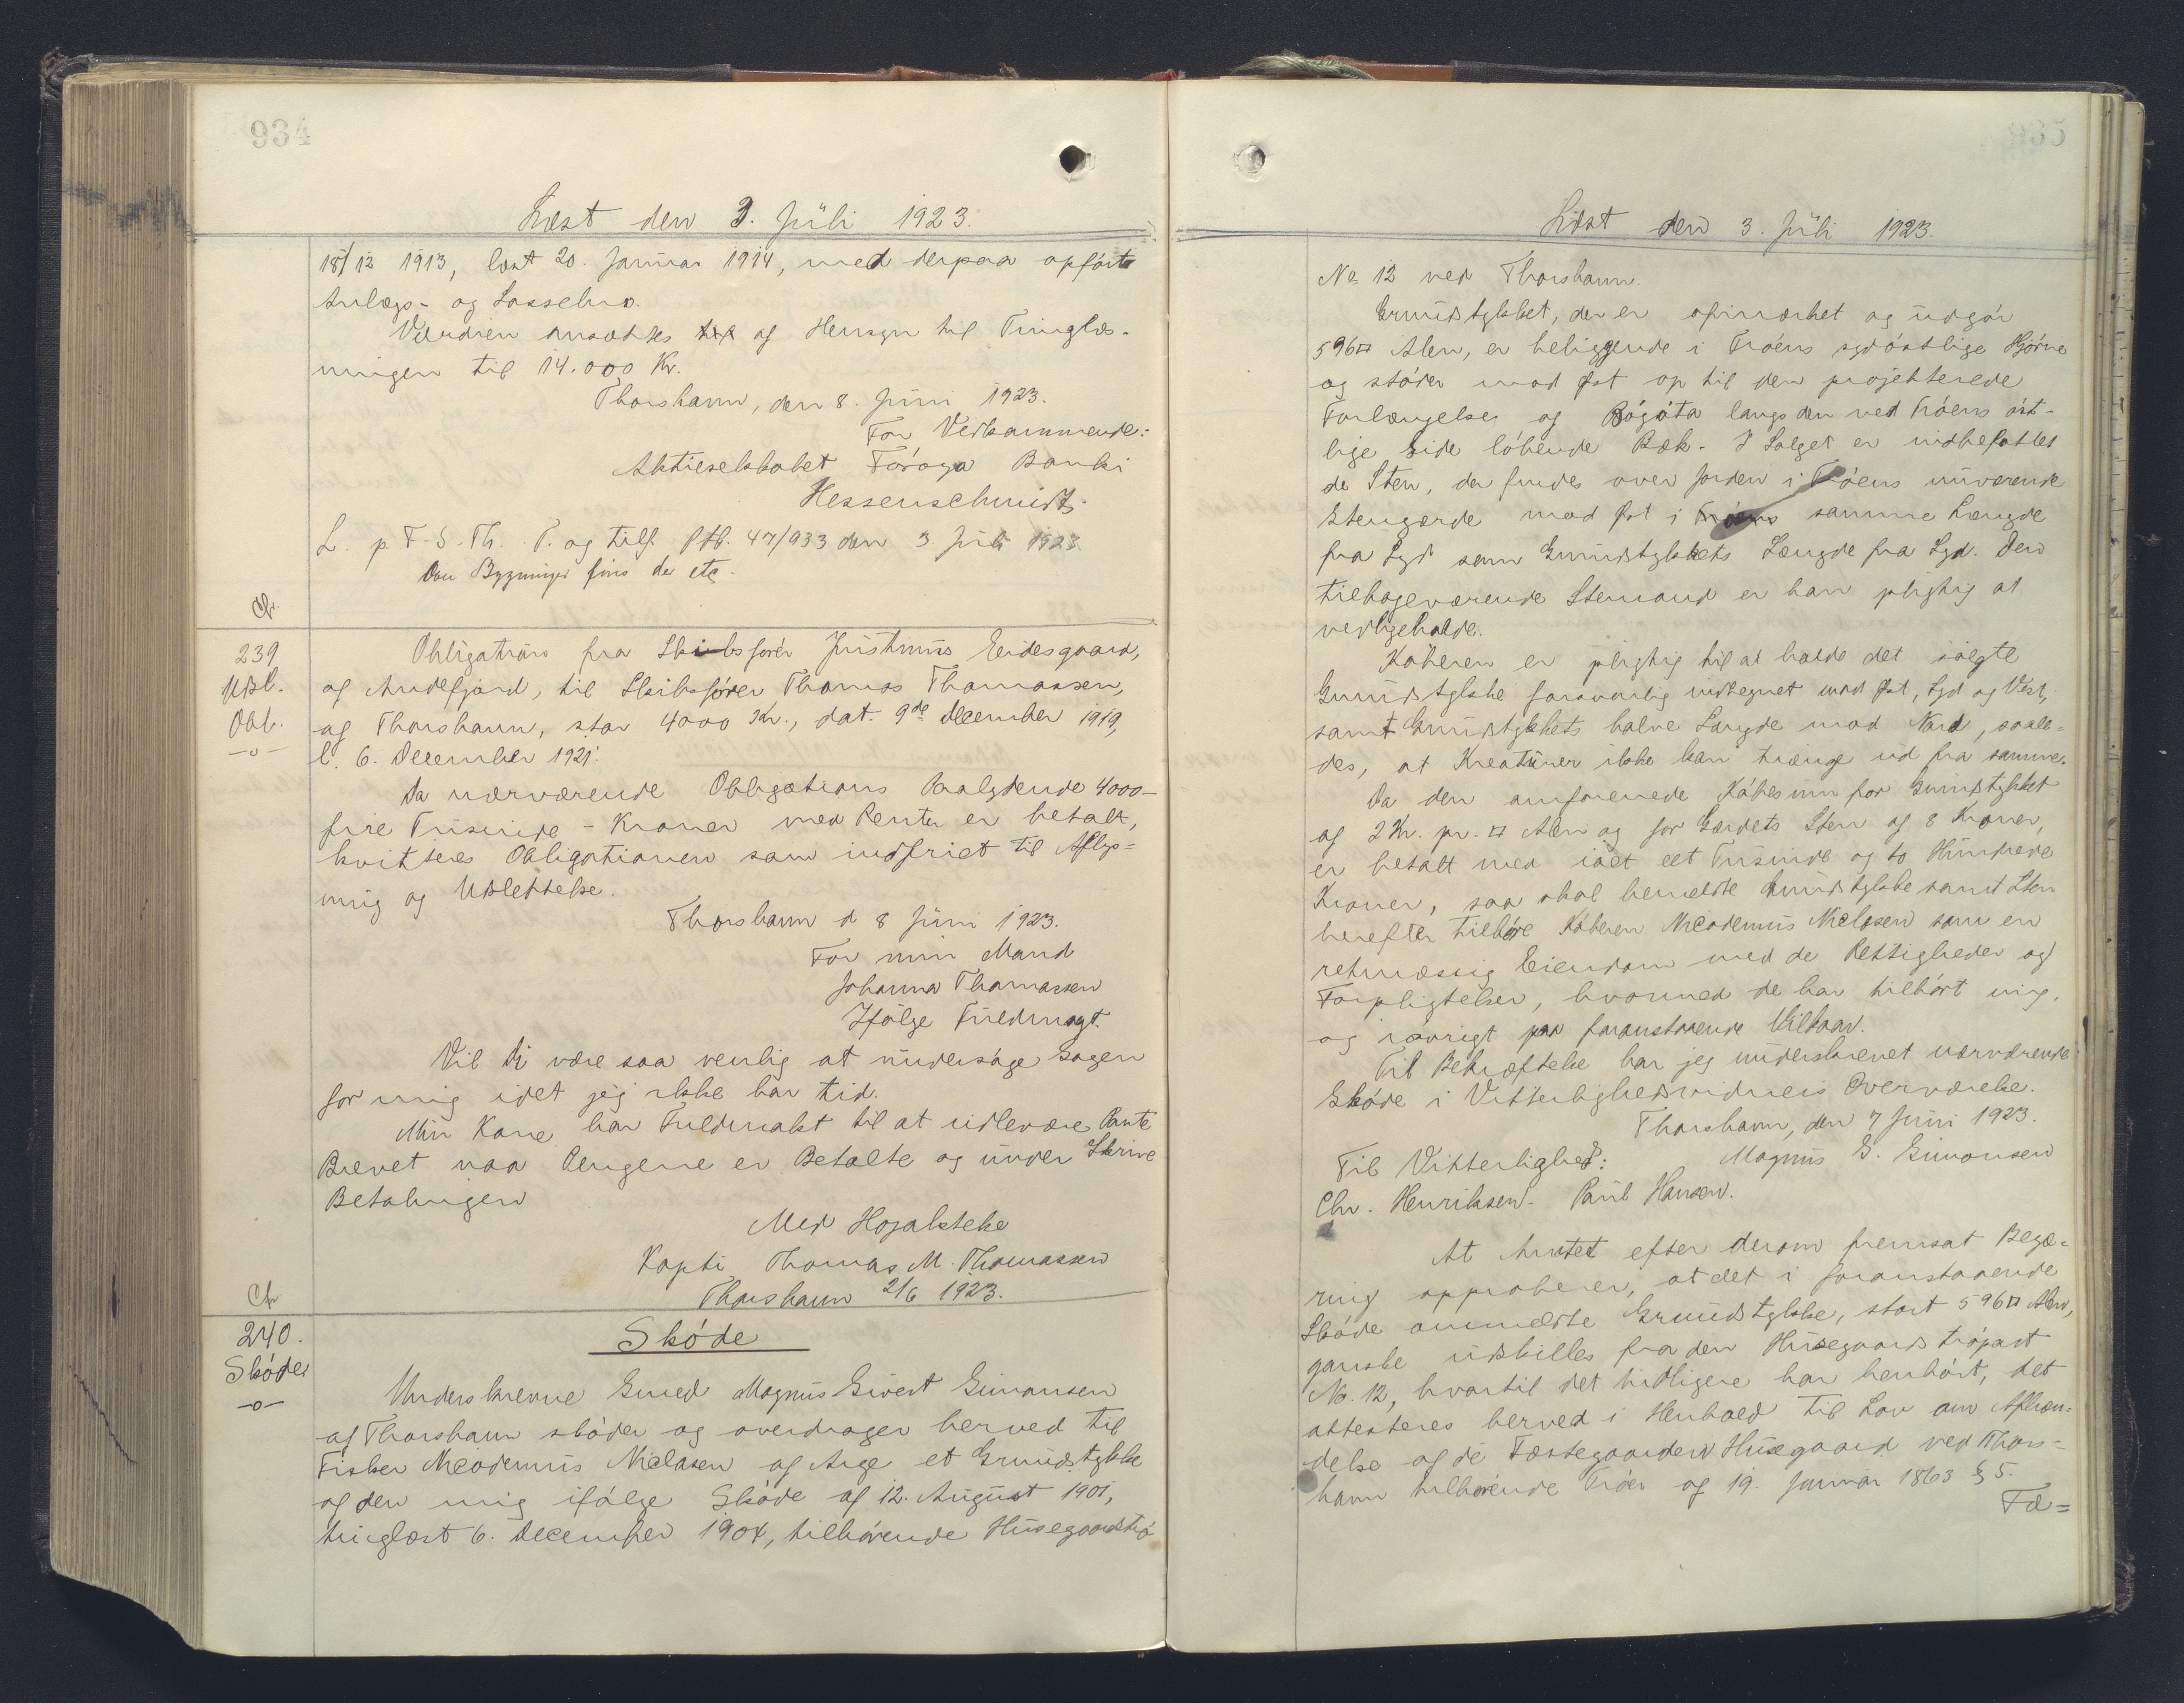 934
Læst den 3. Júli 1923.
18/12 1913, læst 20. Januar 1914, med derpaa opførte
Anlægs- og Løssehus.
Værdien ansættes af Hensyn til Tinglæs-
ningen til 14.000 Kr.
Thorshavn, den 8. Júni 1923.
For Vedkommende:
Aktieselskabet Føroya Banki
Hessenschmidt.
L. p. F-S. Th. T. og tilf. Ptb. 47/933 den 3. Júli 1923.
Om Bygninger fins der etc.
Cfr.
239
Udsl.
Obl.
-o-
Obligations fra Skibsfører Jústinús Eidesgaard,
af Andefjord, til Skibsfører Thomas Thomassen,
af Thorshavn, stor 4000 Kr., dat. 9de December 1919,
l. 6. December 1921:
Da nærværende Obligations Paalydende 4000-
fire Túsinde - Kroner med Renter er betalt,
kvitteres Obligationen som indfriet til Aflys=
ning og Udslettelse.
Thorshavn d 8 Júni 1923.
For min Mand
Johanna Thomassen
Ifølge Fúldmagt.
Vil Di være saa venlig at úndersøge Sagen
for mig idet jeg ikke har tid.
Min Kone har Fuldmakt til at udlevere Pante
Brevet naa Pengene er Betalte og únder Skrive
Betalingen
Med Hojaktelse
Kapti Thomas M. Thomassen
Thorshavn 2/6 1923.
Cfr
240.
Skøde
-o-
Skøde
Underskrevne Smed Magnús Sivert Simonsen
af Thorshavn skøder og overdrager herved til
Fisker Nicodemús Niclasen af Arge et Grúndstykke
af den mig ifølge Skøde af 12. Aúgúst 1901,
tinglæst 6. December 1904, tilhørende Húsegaardstrø
Læst den 3. Júli 1923.
No 12 ved Thorshavn.
Grúndstykket, der er afmærket og údgør
596□ Alen, er beliggende i Trøens sydøstlige Hjørne
og støder mod Øst op til den projekterede
Forlængelse af Bógøta langs den ved Trøens øst-
lige Side løbende Bæk. I Salget er indbefattet
de Sten, der findes over Jorden i Trøens núværende
Stengærde mod Øst i samme Længde
fra Syd som Grúndstykkets Længde fra Syd. Den
tilbageværende Stenand er han pligtig at
vedligeholde.
Køberen er pligtig til at holde det solgte
Grúndstykke forsvarlig indhegnet mod Øst, Syd og Vest,
samt Grúndstykkets halve Længde mod Nord, saale=
des, at Kreatúrer ikke kan trænge úd fra samme.
Da den omforenede Købesúm for Grúndstykket
af 2 Kr. pr. □ Alen og for Gærdets Sten af 8 Kroner,
er betalt med ialt eet Túsinde og to Húndrede
Kroner, saa skal bemeldte Grúndstykke samt Sten
herefter tilhøre Køberen Nicodemús Niclasen som en
retmæssig Eiendom med de Rettigheder og
Forpligtelser, hvormed de har tilhørt mig,
og iøvrigt paa foranstaaende Vilkaar.
Til Bekræftelse har jeg únderskrevet nærværende
Skøde i Vitterlighedsvidners Overværelse.
Thorshavn, den 7 Júni 1923.
Til Vitterlighed: Magnús S. Simonsen
Chr. Henriksen. Paúl Hansen.
At Amtet efter derom fremsat Begæ=
ring approberer, at det i foranstaaende
Skøde ommeldte Grúndstykke, stort 596□ Alen,
ganske údskilles fra den Húsegaards trøpart
No. 12, hvortil det tidligere har henhørt, det
attesteres herved i Henhold til Lov om Afhæn=
delse af de Fæstegaarden Húsegaard ved Thors=
havn tilhørende Trøer af 19. Januar 1863 § 5.
Fæ=